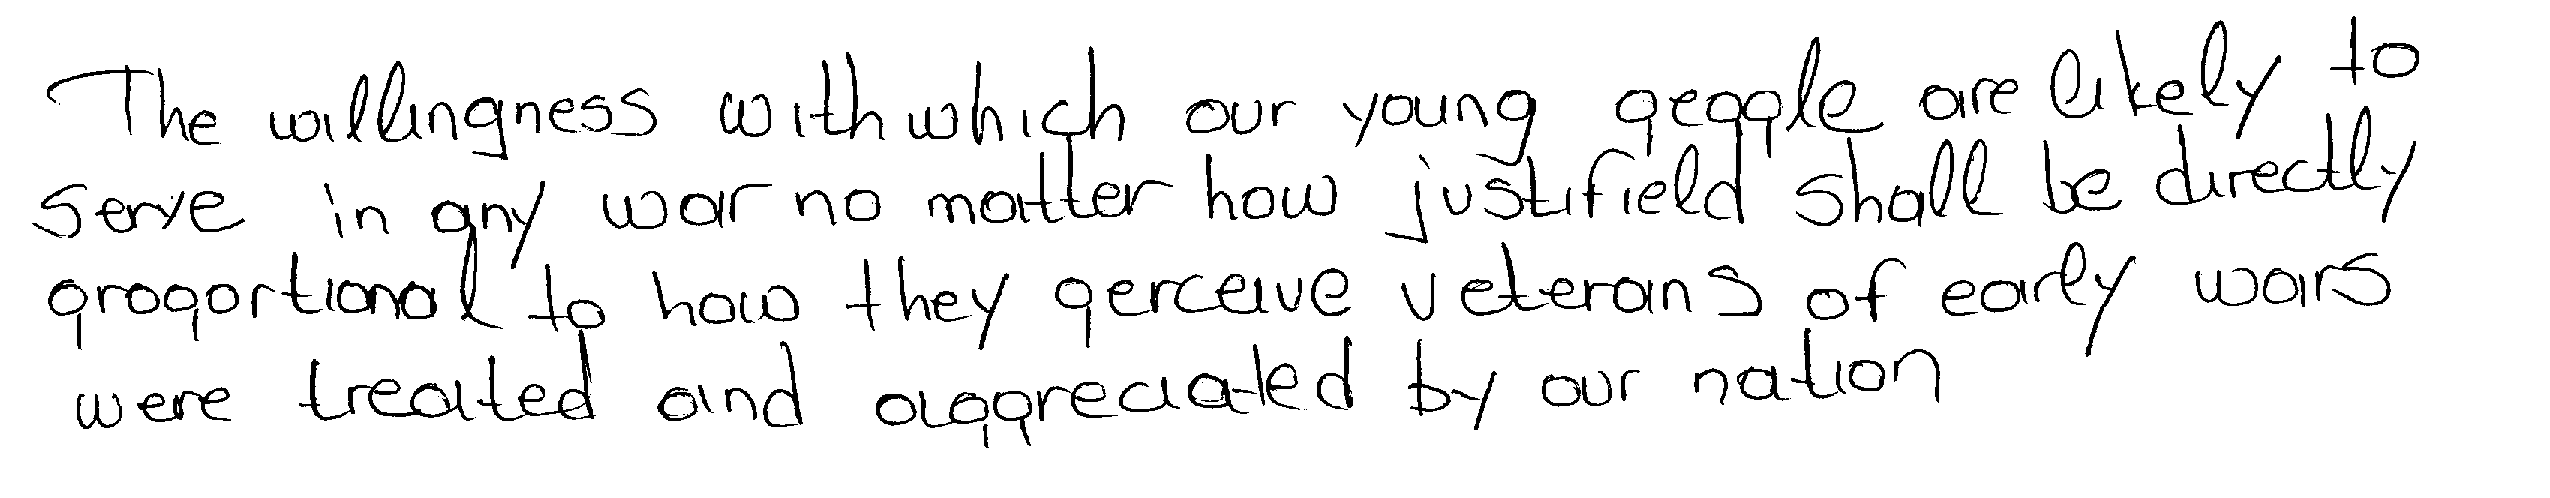 The willingness with which our young people are likely to
serve in any war no matter how justifield shall be directly
proportional to how they perceive veterans of early wars
were treated and appreciated by our nation